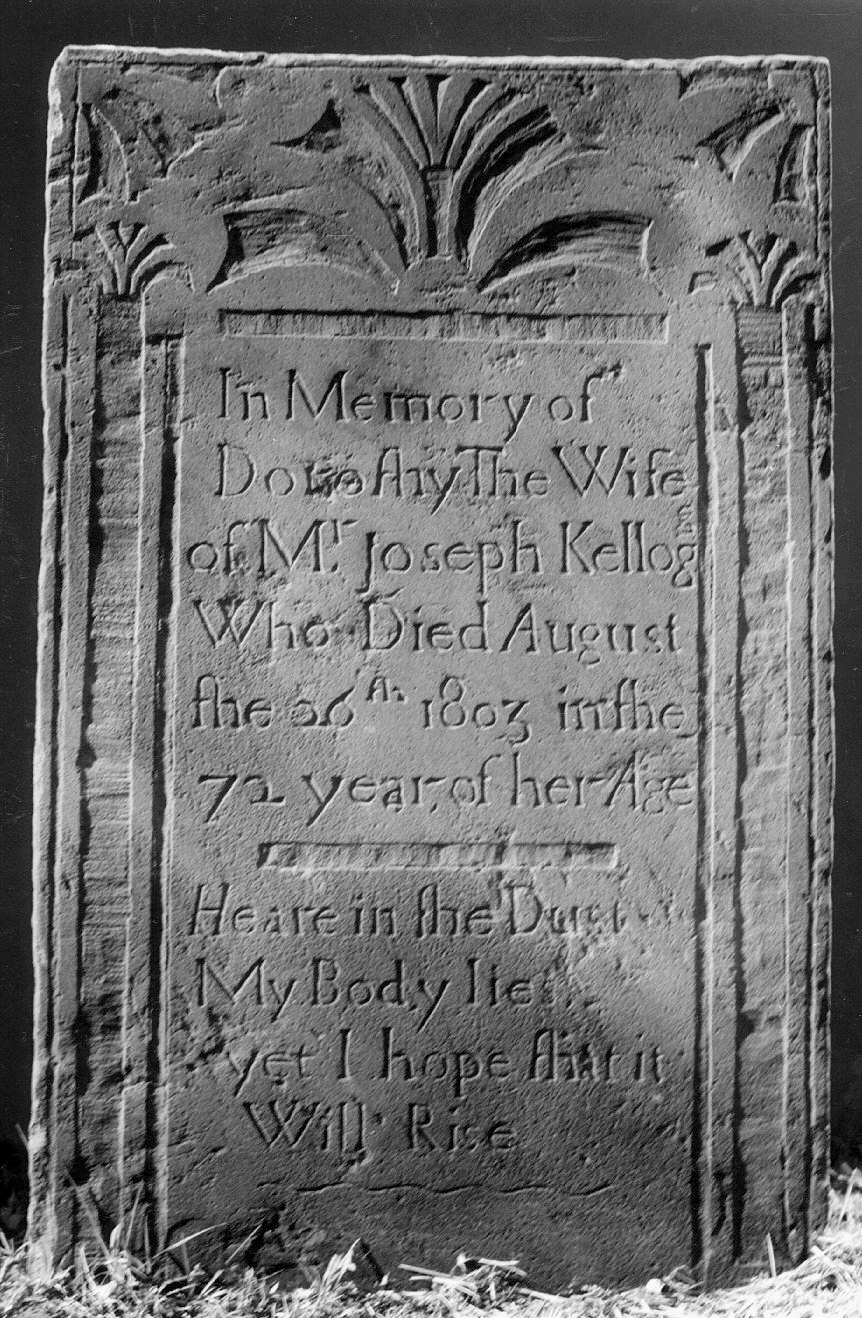 In Memory of
Dorothy The Wife
of Mr Joseph Kellogg
Who Died August
the 26th. 1803 in the
72 year of her Age
Heare in the Dust
My Body lies
yet I hope that it
Will Rise